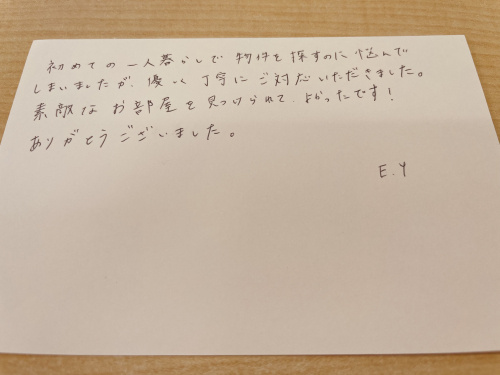 初めての一人暮らしで物件を探すのに悩んで
しまいましたが、優しく丁寧にご対応いただきました。
素敵なお部屋を見つけられて、よかったです！
ありがとうございました。
E.Y